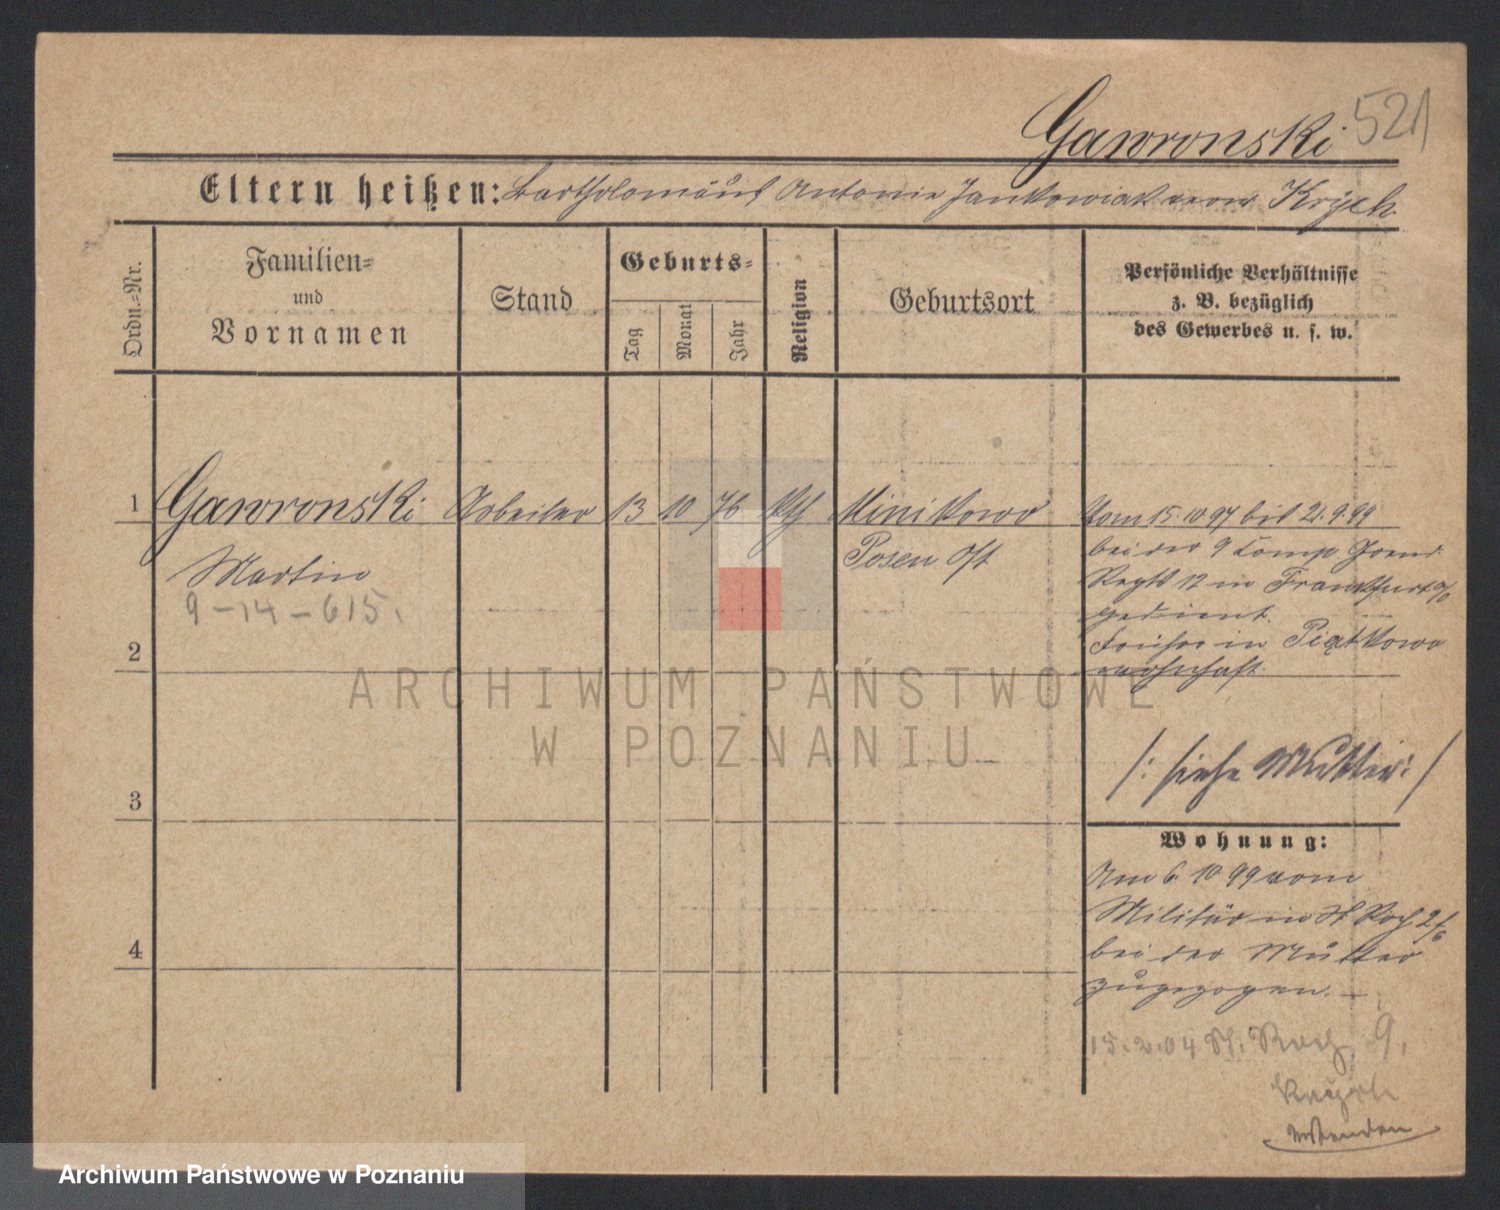 Gawronski 521
Eltern heißen: Bartholomäus Antonie Jankowiak verw. Krych
Ordn.-Nr.
Familien-
und
Vornamen
Stand
Geburts-
Tag
Monat
Jahr
Religion
Geburtsort
Persönliche Verhältnisse
z. B. bezüglich
des Gewerbes u. s. w.
1 Gawronski Arbeiter 13 10 76 kth Minikowo Vom 15.10 97 bis 21.9.99
Posen Ost bei der 9 Comp. Grend
Martin Regts 12 in Frankfurt a/O
9-14-615. gedient.
Früher in Piątkowo
2 wohnhaft.
ARCHIWUM PAŃSTWOWE
W POZNANIU
/: siehe Mutter :/
3
Wohnung:
Am 6 10 99 vom
Militär in St Roch 2/6
4 bei der Mutter
zugezogen.
15.2.04 St. Roch 9.
Krych
Archiwum Państwowe w Poznaniu